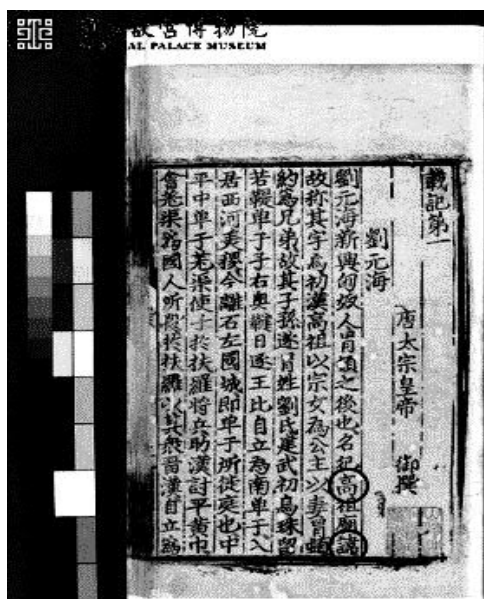 故宮博物院
AL PALACE MUSEUM
載記第一
唐太宗皇帝 御撰
劉元海
劉元海新興匈奴人冒頓之後也名犯高祖廟諱
故称其字焉初漢高祖以宗女為公主以妻冒頓
約爲兄弟故其子孫遂冒姓劉氏建武初烏珠留
若鞮单于子右奥鞬日逐王比自立為南单于入
居西河美稷今離石左國城即单于所徙庭也中
平中单于羌渠使子於扶羅将兵助漢討平黄巾
會羌渠爲國人所殺於扶羅以其衆留漢自立爲